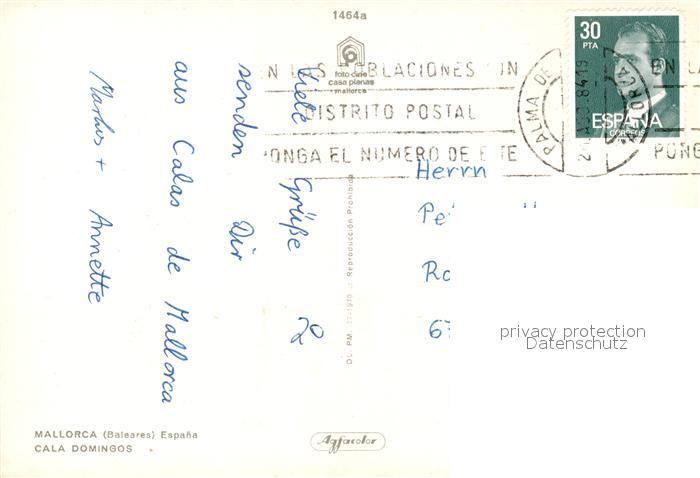 1464a
foto-cine
casa planas
mallorca
30
PTA
ESPAÑA
CORREOS
PALMA DE MALLORCA
84 19
EN LAS POBLACIONES CON
DISTRITO POSTAL
PONGA EL NUMERO DE ESTE
EN LA
PONG
Viele Grüße
senden Dir
aus Calas de Mallorca
Markus + Annette
Herrn
Pe
Ro
67
privacy protection
Datenschutz
Reproducción Prohibida
MALLORCA (Baleares) España
CALA DOMINGOS
Agfacolor